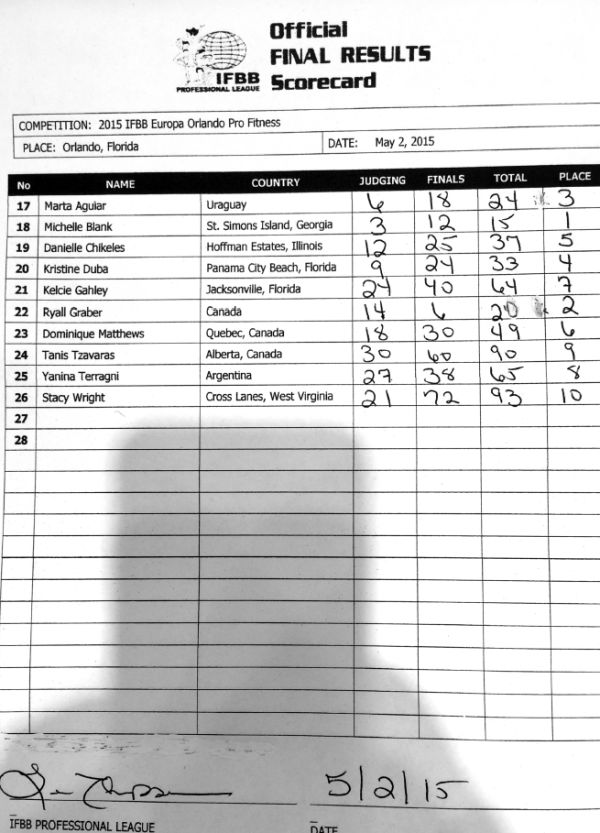 Official
FINAL RESULTS
Scorecard
IFBB
PROFESSIONAL LEAGUE
COMPETITION: 2015 IFBB Europa Orlando Pro Fitness
PLACE: Orlando, Florida DATE: May 2, 2015
No NAME COUNTRY JUDGING FINALS TOTAL PLACE
17 Marta Aguiar Uraguay 6 18 24 3
18 Michelle Blank St. Simons Island, Georgia 3 12 15 1
19 Danielle Chikeles Hoffman Estates, Illinois 12 25 37 5
20 Kristine Duba Panama City Beach, Florida 9 24 33 4
21 Kelcie Gahley Jacksonville, Florida 24 40 64 7
22 Ryall Graber Canada 14 6 20 2
23 Dominique Matthews Quebec, Canada 18 30 49 6
24 Tanis Tzavaras Alberta, Canada 30 60 90 9
25 Yanina Terragni Argentina 27 38 65 8
26 Stacy Wright Cross Lanes, West Virginia 21 72 93 10
27
28
5/2/15
IFBB PROFESSIONAL LEAGUE DATE